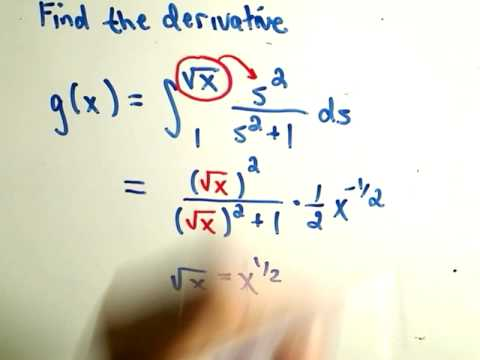 Find the derivative
g(x) = ∫₁^√x s²/(s²+1) ds
= (√x)²/((√x)²+1) · 1/2 x^(-1/2)
√x = x^(1/2)